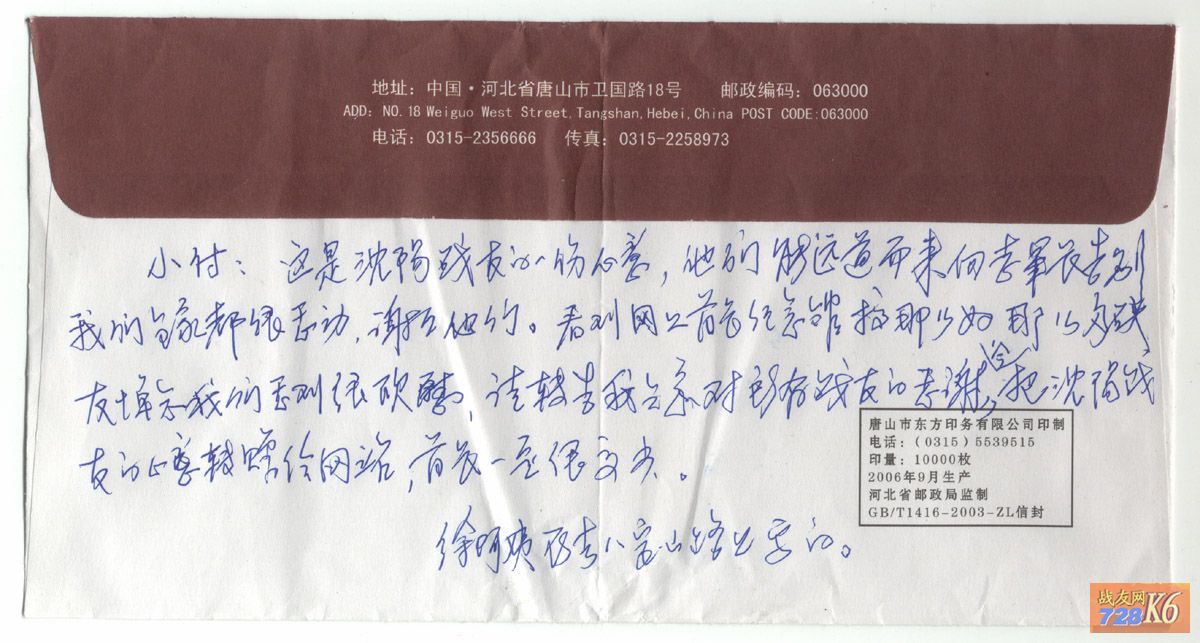 地址：中国·河北省唐山市卫国路18号 邮政编码：063000
ADD: NO.18 Weiguo West Street,Tangshan,Hebei,China POST CODE:063000
电话：0315-2356666 传真：0315-2258973
小付：这是沈阳战友的一份心意，他们能远道而来向李军长告别
我们全家都很感动，谢谢他们。看到网上首长
友 我们感到很欣慰，请转告我全家对所有战友的感谢，把沈阳战
友的心意转赠给网站，首长一定很高兴。
徐 写的。
唐山市东方印务有限公司印制
电话：(0315) 5539515
印量：10000枚
2006年9月生产
河北省邮政局监制
GB/T1416-2003-ZL信封
战友网
728K6